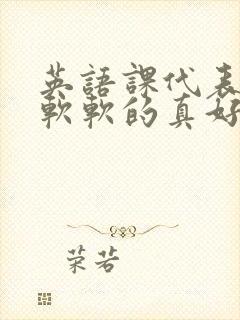 英語課代表
軟軟的真好
荣若